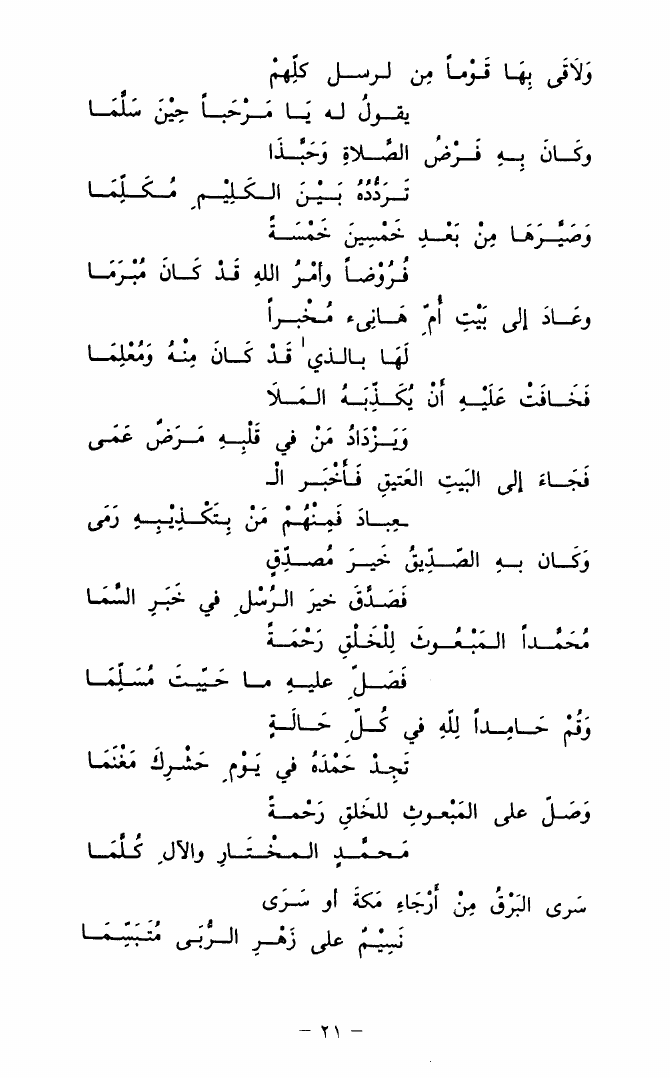 وَلَاقَى بِهَا قَوْماً مِن لرسل كلِّهمْ
يقولُ له يَا مَرْحَباً حِيْنَ سَلَّمَا
وكَانَ بِهِ فَرْضُ الصَّلاةِ وَحَبَّذَا
تَرَدُّدُهُ بَيْنَ الكَلِيْمِ مُكَلِّمَا
وَصَيَّرَهَا مِنْ بَعْدِ خَمْسِينَ خَمْسَةً
فُرُوْضاً وأمْرُ اللهِ قَدْ كَانَ مُبْرَمَا
وعَادَ إلى بَيْتِ أُمِّ هَانِىء مُخْبِراً
لَهَا بالذي' قَدْ كَانَ مِنْهُ وَمُعْلِمَا
فَخَافَتْ عَلَيْهِ أَنْ يُكَذِّبَهُ المَلَا
وَيَزْدَادُ مَنْ في قَلْبِهِ مَرَضٌ عَمَى
فَجَاءَ إلى البَيتِ العَتيقِ فَأَخْبَر الْـ
ـعِبادَ فَمِنْهُمْ مَنْ بِتَكْذِيْبِهِ رَمَى
وَكَان بهِ الصِّدِّيقُ خَيرَ مُصدِّقٍ
فَصَدَّقَ خيرَ الرُسْلِ في خَبَرِ السَّمَا
مُحَمَّداً المَبْعُوثَ لِلْخَلْقِ رَحْمَةً
فَصَلِّ عليهِ ما حَيَّيتَ مُسَلِّمَا
وَقُمْ حَامِداً لِلَّهِ في كُلِّ حَالَةٍ
تَجِدْ حَمْدَهُ في يَوْمِ حَشْرِكَ مَغْنَمَا
وَصَلِّ على المَبْعوثِ للخَلقِ رَحْمةً
مُحمَّدٍ المخْتَارِ والآلِ كُلَّمَا
سَرى البَرْقُ مِنْ أَرْجَاءِ مَكةَ أو سَرَى
نَسِيْمٌ على زَهْرِ الرُّبَى مُتَبَسِّمَا
– ٢١ –